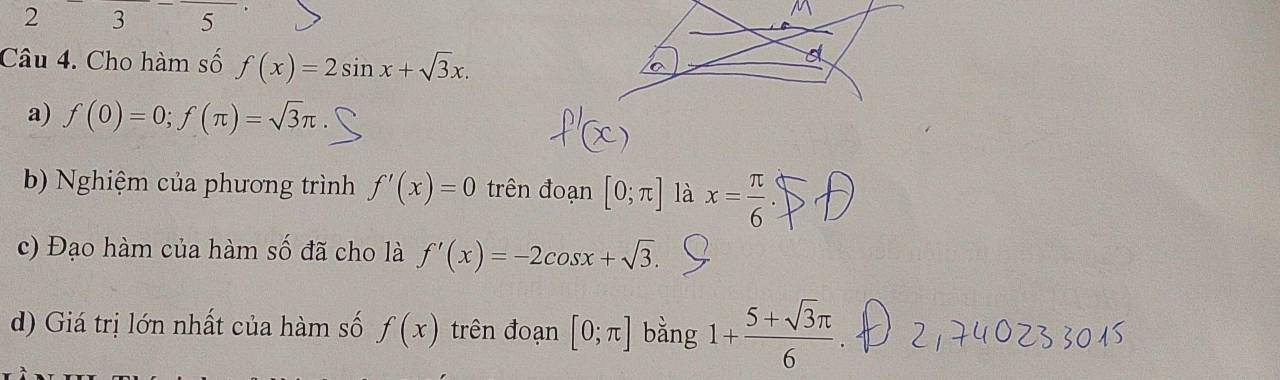 2 3 5 .
M
Câu 4. Cho hàm số f(x) = 2 sin x + √3x.
a d
a) f(0) = 0; f(π) = √3π. S
f'(x)
b) Nghiệm của phương trình f'(x) = 0 trên đoạn [0; π] là x = π/6. Đ
c) Đạo hàm của hàm số đã cho là f'(x) = -2cosx + √3. S
d) Giá trị lớn nhất của hàm số f(x) trên đoạn [0; π] bằng 1 + (5 + √3π)/6. Đ 2,740233015